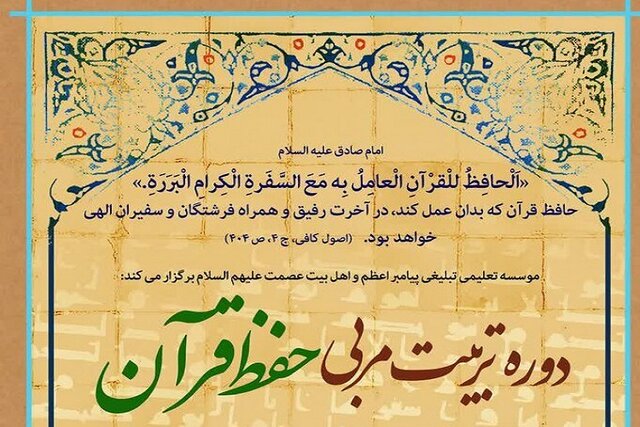 امام صادق علیه السلام
«اَلْحافِظُ لِلْقُرْآنِ الْعامِلُ بِه مَعَ السَّفَرَةِ الْكِرامِ الْبَرَرَةِ.»
حافظ قرآن که بدان عمل کند، در آخرت رفیق و همراه فرشتگان و سفیران الهی
خواهد بود. (اصول کافی، ج ۴، ص ۴۰۴)
موسسه تعلیمی تبلیغی پیامبر اعظم و اهل بیت عصمت علیهم السلام برگزار می کند:
دوره تربیت مربی حفظ قرآن